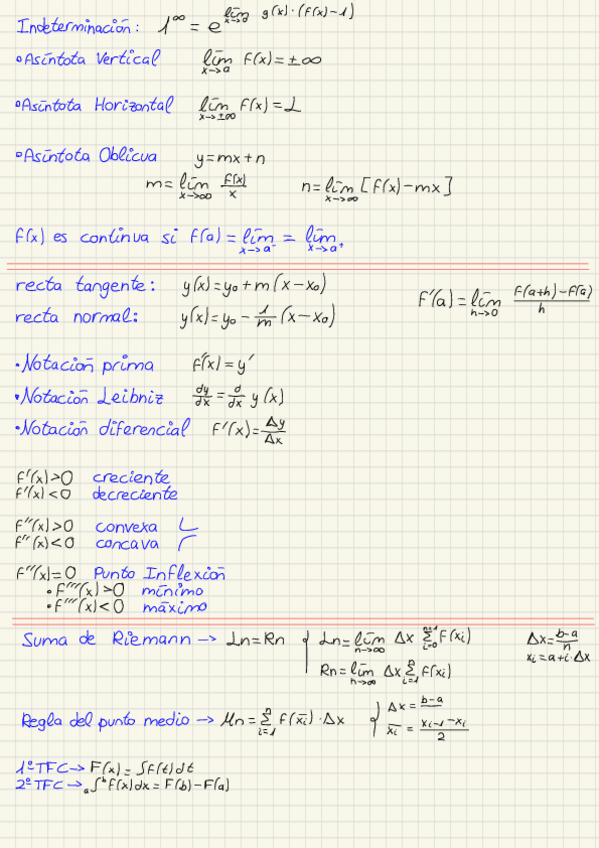 Indeterminación: 1^∞ = e^{lím_{x→a} g(x)·(f(x)-1)}
Asíntota Vertical lím_{x→a} f(x)=±∞
Asíntota Horizontal lím_{x→±∞} f(x)=L
Asíntota Oblicua y=mx+n
m=lím_{x→∞} f(x)/x n=lím_{x→∞} [f(x)-mx]
f(x) es continua si f(a)=lím_{x→a⁻} = lím_{x→a⁺}
recta tangente: y(x)=y₀+m(x-x₀)
F'(a)=lím_{h→0} (f(a+h)-f(a))/h
recta normal: y(x)=y₀-1/m(x-x₀)
·Notación prima f'(x)=y'
·Notación Leibniz dy/dx=d/dx y(x)
·Notación diferencial F'(x)=Δy/Δx
F'(x)>0 creciente
F'(x)<0 decreciente
F''(x)>0 convexa
F''(x)<0 concava
F''(x)=0 Punto Inflexión
·F'''(x)>0 mínimo
·F'''(x)<0 máximo
Suma de Riemann → Ln=Rn { Ln=lím_{n→∞} Δx Σ_{i=0}^{n-1} F(xi) Δx=(b-a)/n
xi=a+i·Δx
Rn=lím_{n→∞} Δx Σ_{i=1}^{n} f(xi)
Regla del punto medio → Mn=Σ_{i=1}^{n} f(x̄i)·Δx { Δx=b-a
x̄i=(xi-1-xi)/2
1º TFC→ F(x)=∫f(t)dt
2º TFC→ ₐ∫ᵇf(x)dx=F(b)-F(a)